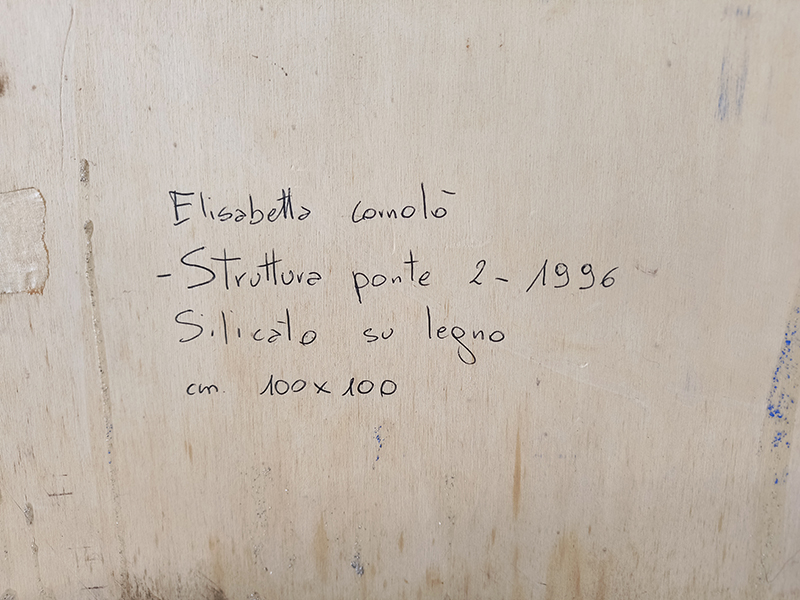 Elisabetta Comolò
- Struttura ponte 2 - 1996
Silicato su legno
cm. 100x100